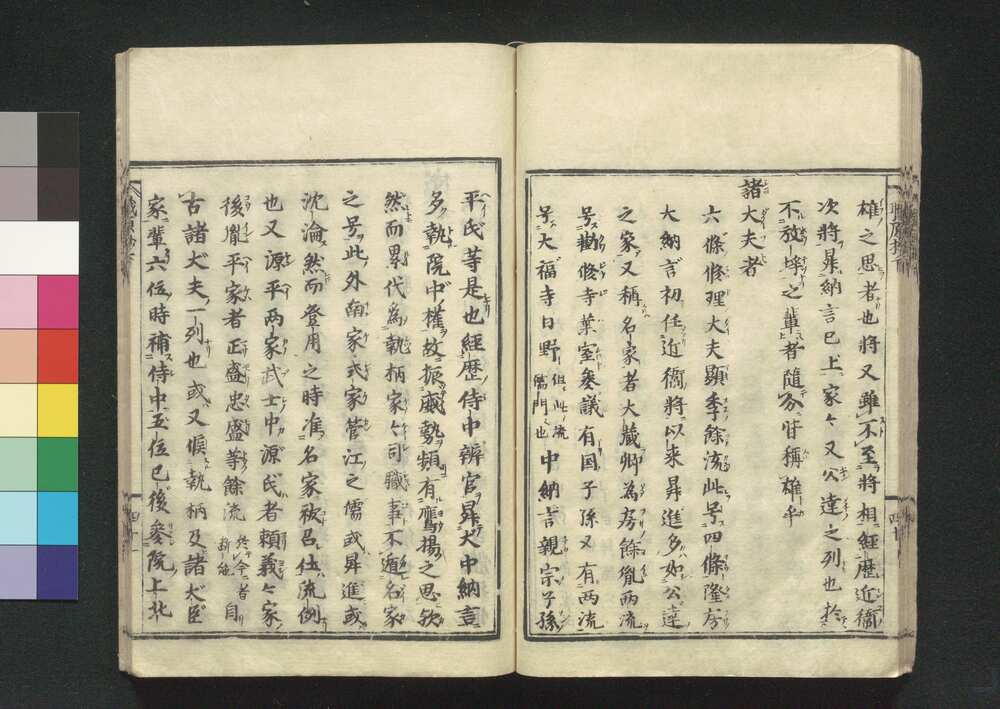 雄之思者也將又雖不至將相經歴近衞
次將昇納言已上家々又公達之列也於
不放埓之輩者隨分皆稱雄乎
諸大夫者
六條修理大夫顯季餘流此号四條隆房
大納言初任近衞將以来昇進多如公達
之家又稱名家者大藏卿為房餘胤兩流
号勸修寺葉室參議有国子孫又有两流
号大福寺日野但此一流儒門也中納言親宗子孫
平氏等是也經歴侍中辨官昇大中納言
多執院中權故振威勢頻有鷹揚之思歟
然而累代為執柄家々司職事不遁名家
之号此外南家式家菅江之儒或昇進或
沈淪然而登用之時准名家被召仕流例
也又源平兩家武士中源氏者頼義々家
後胤平家者正盛忠盛等餘流於今者斷絶自
古諸大夫一列也或又候執柄及諸大臣
家輩六位時補侍中五位已後參院上北
職原抄下
四十一